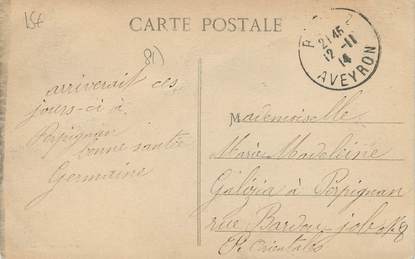 15f
CARTE POSTALE
81)
R
21 45
12 - 11
14
AVEYRON
arriverait ces
jours-ci à
Perpignan
bonne santée
Germaine
Mademoiselle
Marie Madeleine
à Perpignan
rue Bardou-job
P. Orientales